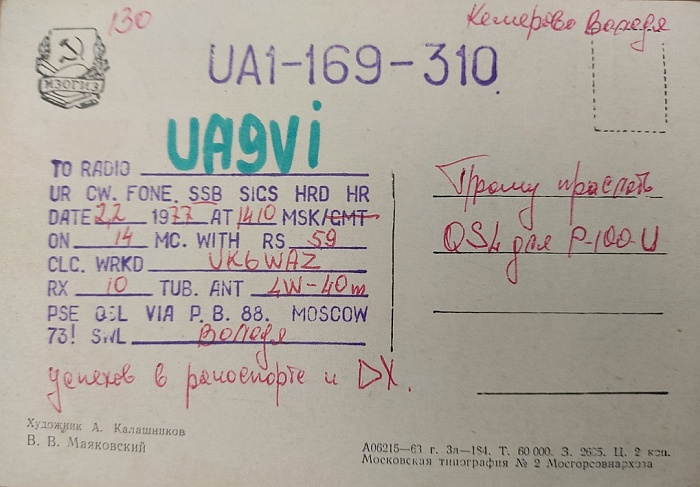 130
Кемерово Володя
ИЗОГИЗ
UA1-169-310
UA9Vi
TO RADIO
UR CW. FONE. SSB SIGS HRD HR
DATE 2,2 1977 AT 1410 MSK/GMT
ON 14 MC. WITH RS 59
CLC. WRKD VK6WAZ
RX 10 TUB. ANT LW-40m
PSE QSL VIA P. B. 88. MOSCOW
73! SWL Володя
успехов в радиоспорте и DX.
Прошу прислать
QSL для Р-100-U
Художник А. Калашников
В. В. Маяковский
А06215—63 г. Зл—184. Т. 60 000. З. 2635. Ц. 2 коп.
Московская типография № 2 Мосгорсовнархоза